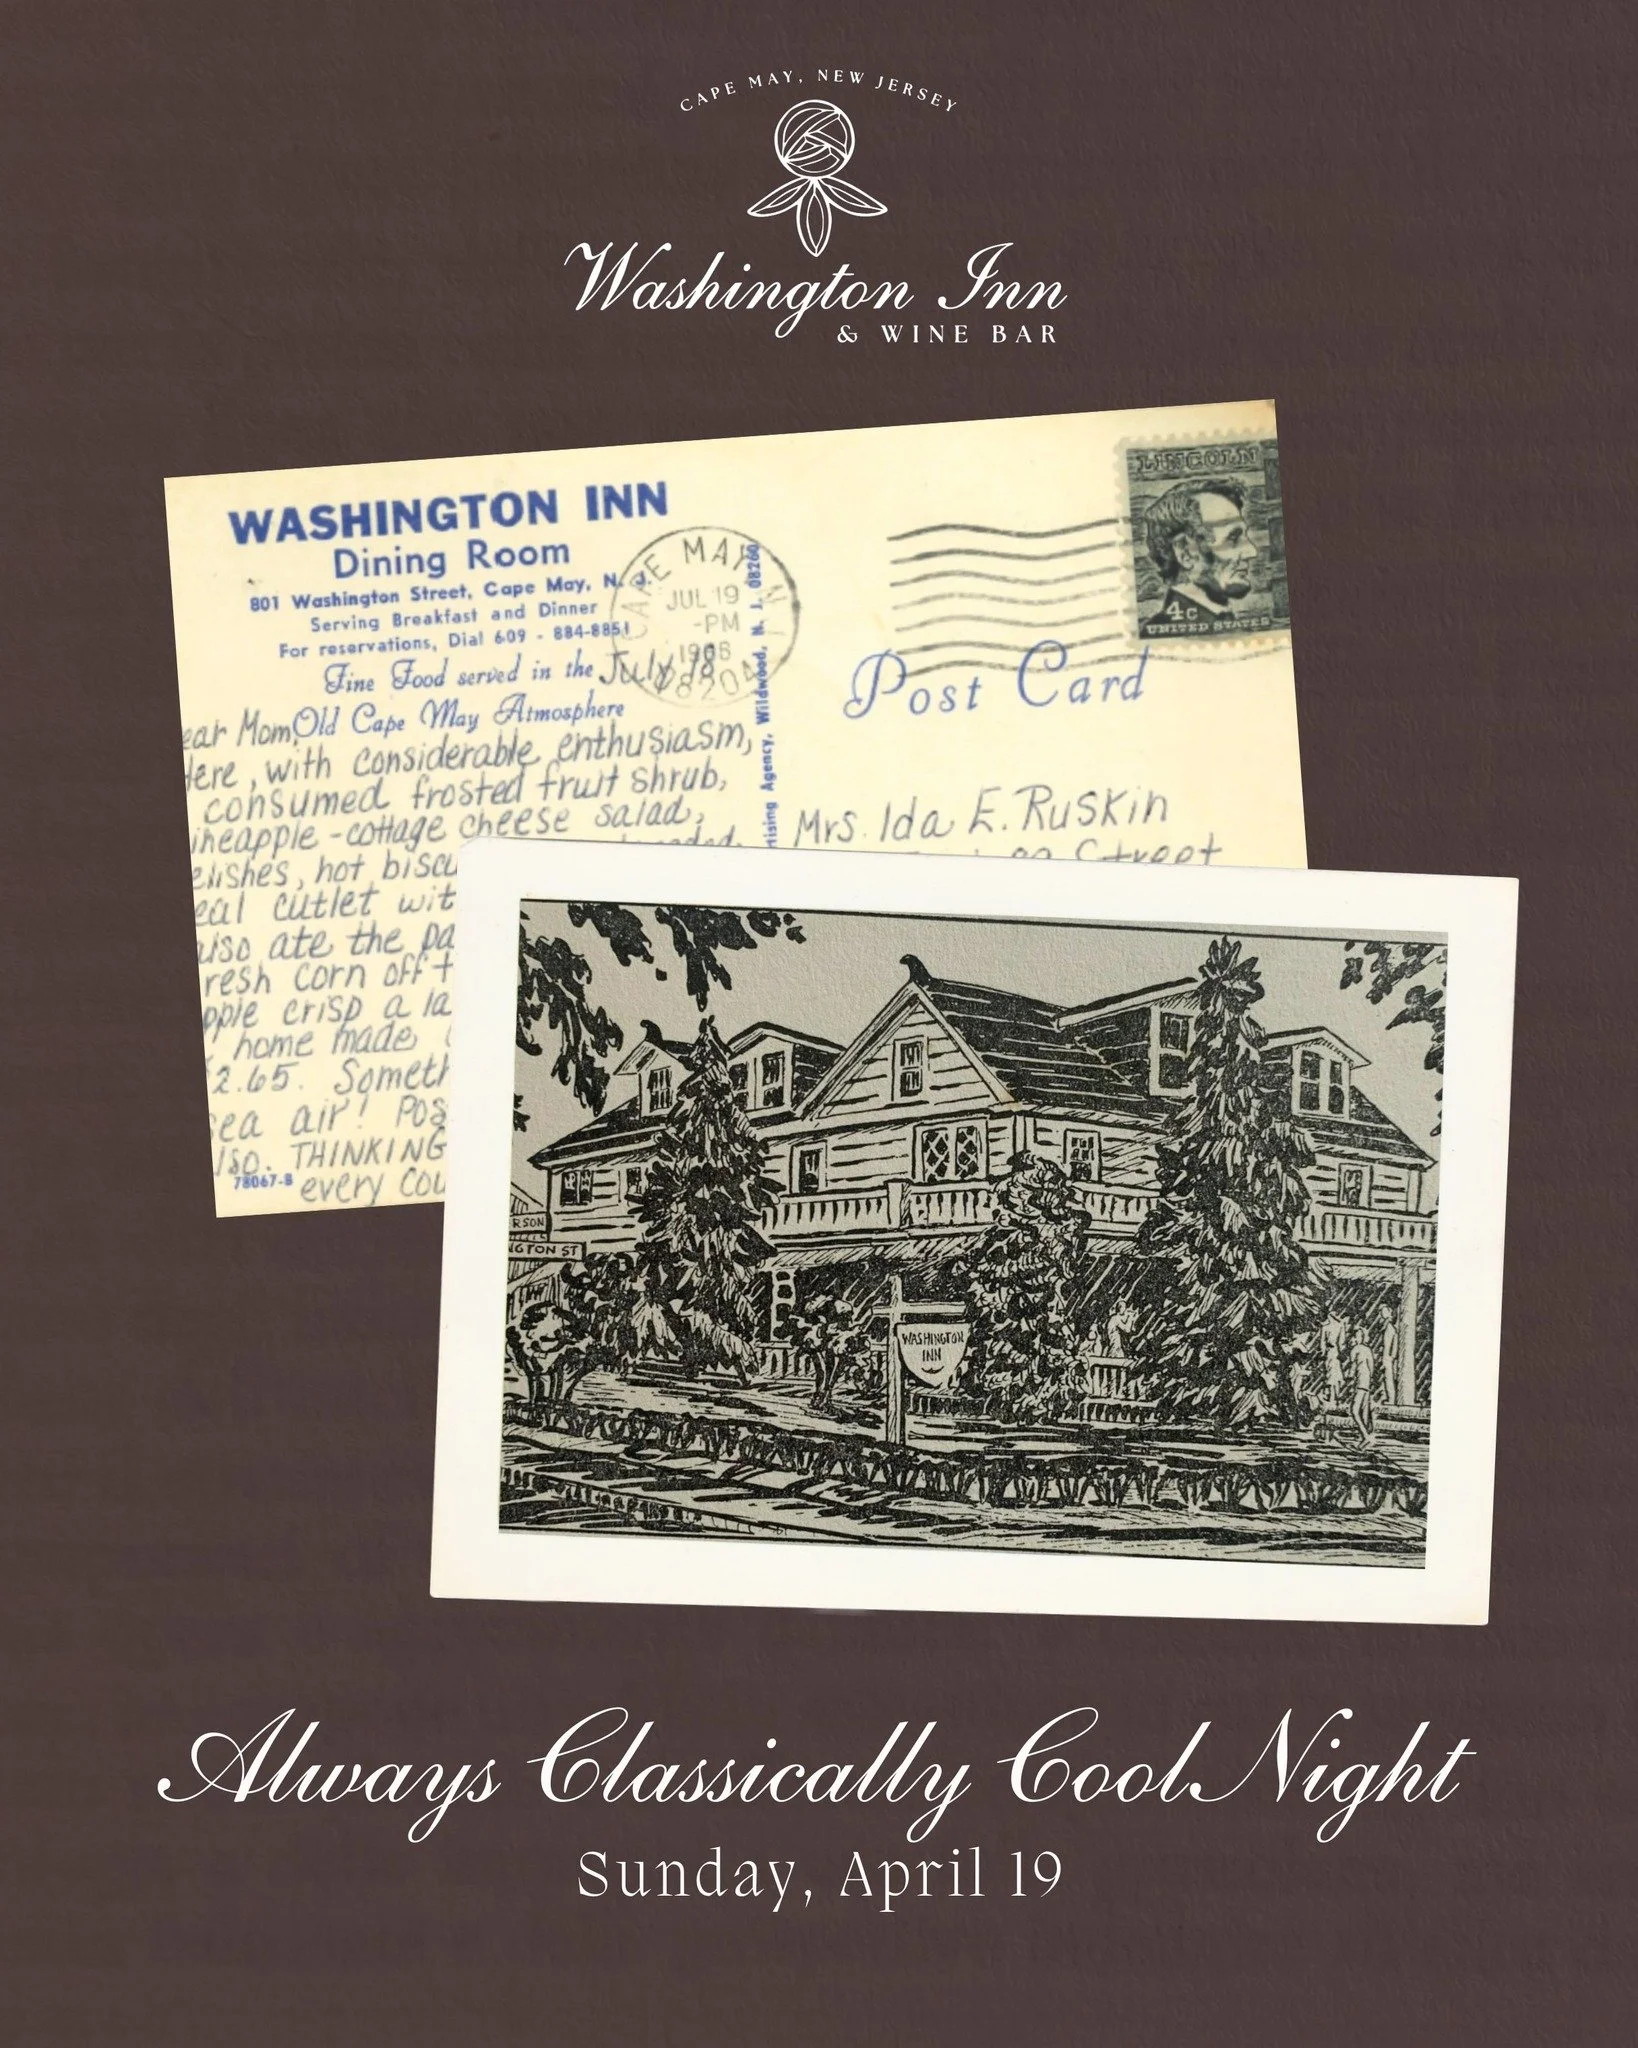 CAPE MAY, NEW JERSEY
Washington Inn
& WINE BAR
WASHINGTON INN
Dining Room
801 Washington Street, Cape May, N. J.
Serving Breakfast and Dinner
For reservations, Dial 609 - 884-8851
Fine Food served in the
Old Cape May Atmosphere
CAPE MAY
JUL 19
-PM
LINCOLN
4c
UNITED STATES
Post Card
rtising Agency, Wildwood, N. J. 08260
July 18
ear Mom,
Here, with considerable enthusiasm,
consumed frosted fruit shrub,
ineapple - cottage cheese salad,
elishes, hot biscu
eal cutlet wit
also ate the pa
resh corn off t
pple crisp a la
home made
2.65. Someth
sea air! Pos
lso. THINKING
every cou
78067-B
Mrs. Ida E. Ruskin
Street
RSON
NGTON ST
WASHINGTON
INN
Always Classically Cool Night
Sunday, April 19